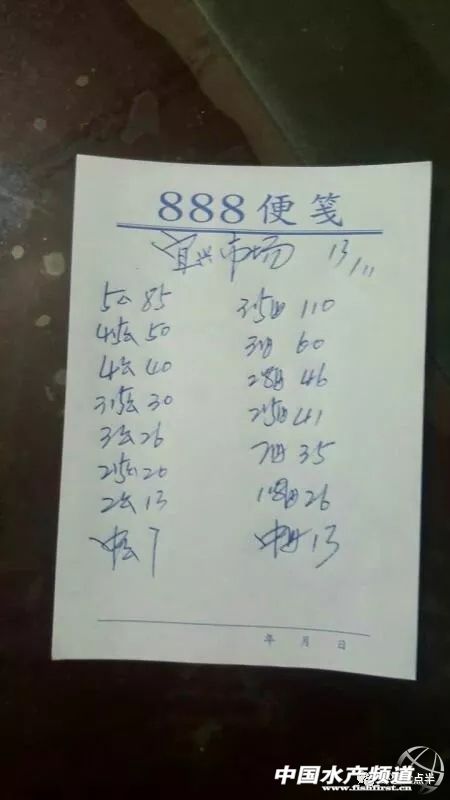 888便笺
宜兴市场 13/11
5公 85 3.5母 110
4.5公 50 3母 60
4公 40 2.8母 46
3.5公 30 2.5母 41
3公 26 2母 35
2.5公 20 1.8母 26
2公 13 中母 13
中公 7
年 月 日
中国水产频道
www.fishfirst.cn
点半